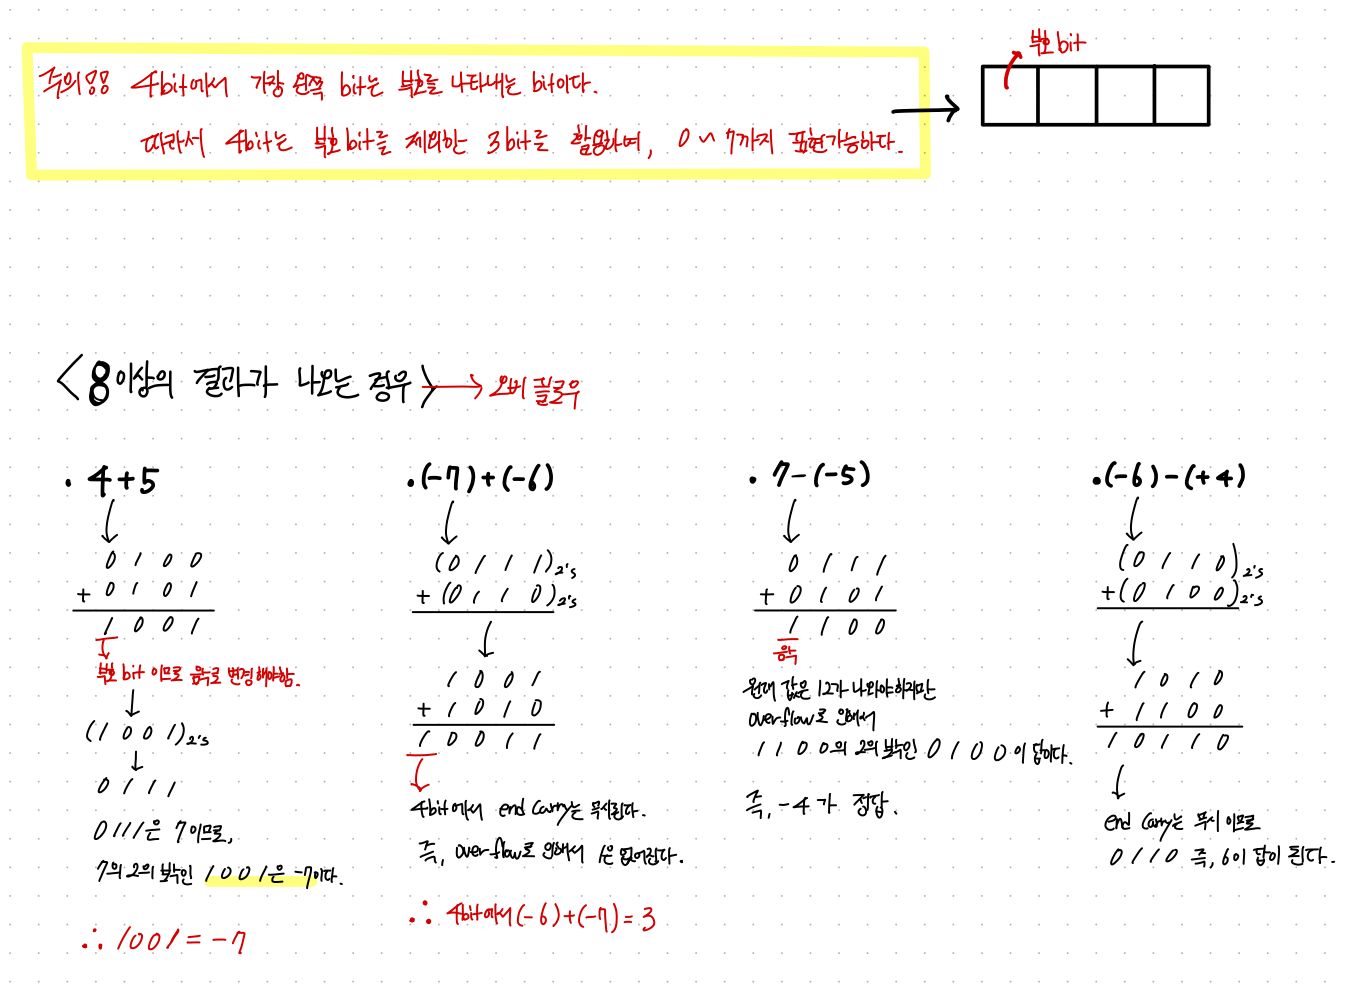 부호 bit
주의점 4bit에서 가장 왼쪽 bit는 부호를 나타내는 bit이다.
따라서 4bit는 부호 bit를 제외한 3bit를 활용하여, 0 ~ 7까지 표현가능하다.
<8이상의 결과가 나오는 경우> → 오버플로우
· 4+5
0 1 0 0
+ 0 1 0 1
1 0 0 1
부호 bit 이므로 음수로 변경해야함.
(1 0 0 1)2's
0 1 1 1
0111은 7이므로,
7의 2의 보수인 1001은 -7이다.
∴ 1001 = -7
· (-7)+(-6)
(0 1 1 1)2's
+ (0 1 1 0)2's
1 0 0 1
+ 1 0 1 0
1 0 0 1 1
4bit에서 end carry는 무시된다.
즉, overflow로 인해서 1은 없어진다.
∴ 4bit에서 (-6)+(-7) = 3
· 7-(-5)
0 1 1 1
+ 0 1 0 1
1 1 0 0
음수
원래 값은 12가 나와야하지만
overflow로 인해서
1 1 0 0의 2의 보수인 0 1 0 0이 답이다.
즉, -4가 정답.
· (-6)-(+4)
(0 1 1 0)2's
+(0 1 0 0)2's
1 0 1 0
+ 1 1 0 0
1 0 1 1 0
end carry는 무시 이므로
0 1 1 0 즉, 6이 답이 된다.